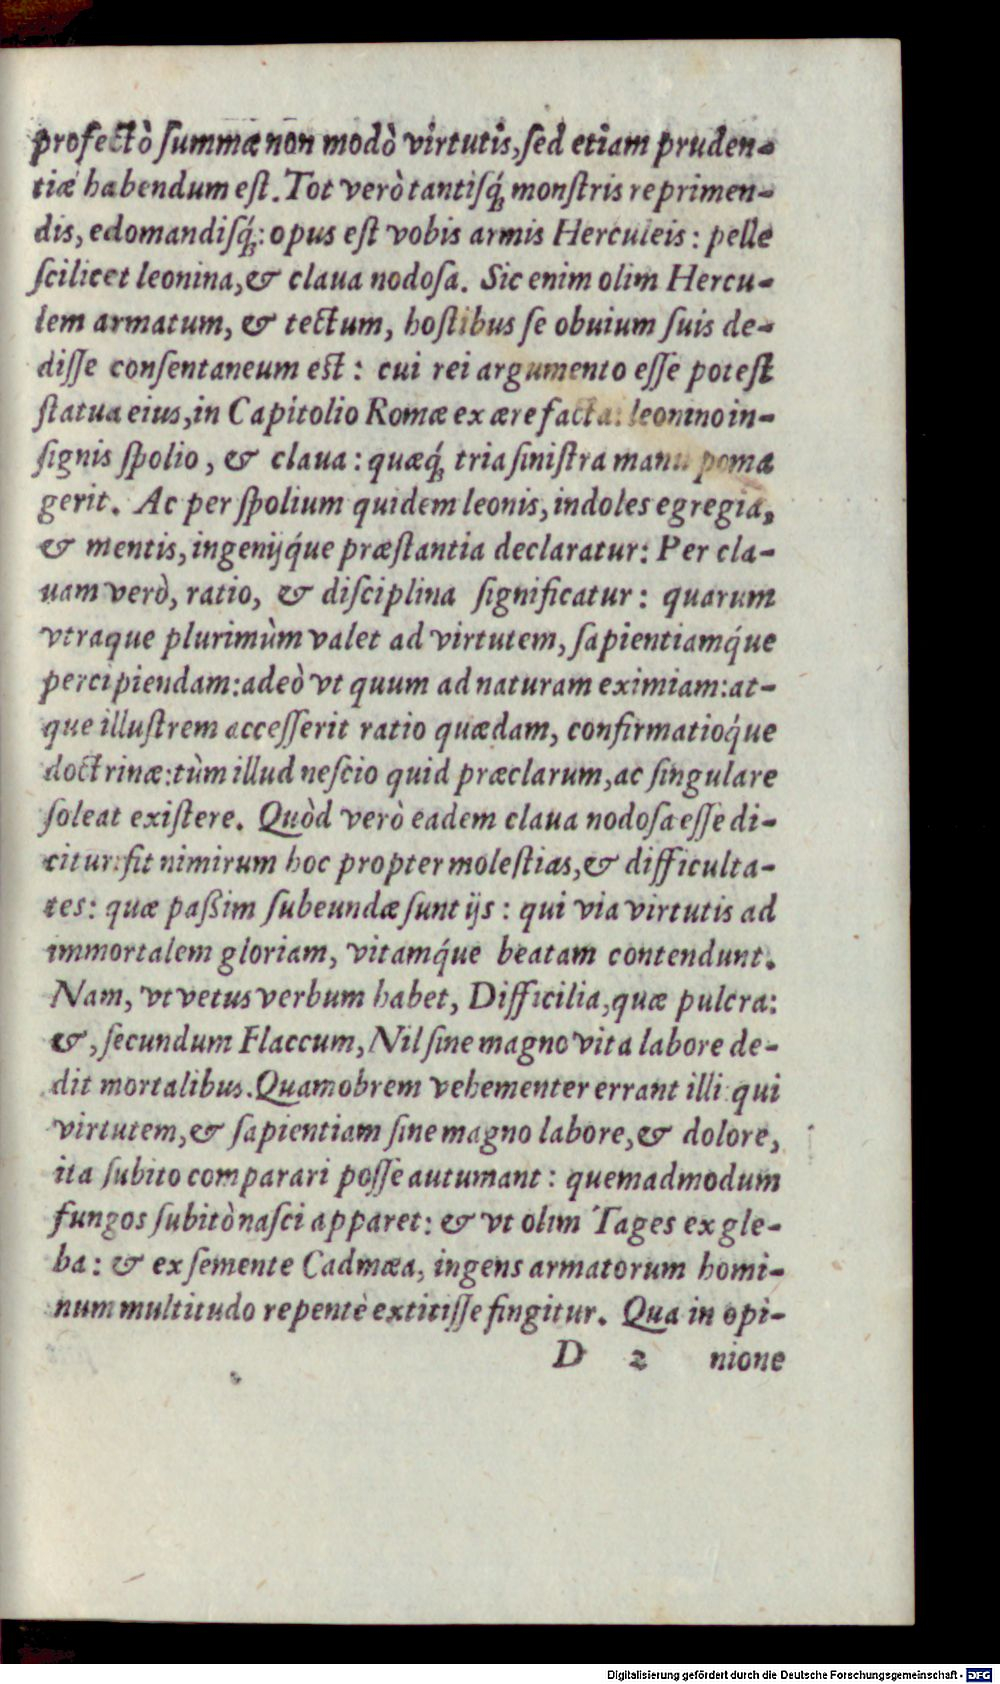 profectò ſummæ non modò virtutis, ſed etiam pruden-
tiæ habendum eſt. Tot verò tantiſq́; monſtris reprimen-
dis, edomandiſq́;: opus eſt vobis armis Herculeis: pelle
ſcilicet leonina, & claua nodoſa. Sic enim olim Hercu-
lem armatum, & tectum, hoſtibus ſe obuium ſuis de-
diſſe conſentaneum eſt: cui rei argumento eſſe poteſt
ſtatua eius, in Capitolio Romæ ex ære facta: leonino in-
ſignis ſpolio, & claua: quæq́; tria ſiniſtra manu poma
gerit. Ac per ſpolium quidem leonis, indoles egregia,
& mentis, ingenijq́ue præſtantia declaratur: Per cla-
uam verò, ratio, & diſciplina ſignificatur: quarum
vtraque plurimùm valet ad virtutem, ſapientiamq́ue
percipiendam: adeò vt quum ad naturam eximiam: at-
que illuſtrem acceſſerit ratio quædam, confirmatioq́ue
doctrinæ: tùm illud neſcio quid præclarum, ac ſingulare
ſoleat exiſtere. Quòd verò eadem claua nodoſa eſſe di-
citur: fit nimirum hoc propter moleſtias, & difficulta-
tes: quæ paßim ſubeundæ ſunt ijs: qui via virtutis ad
immortalem gloriam, vitamq́ue beatam contendunt.
Nam, vt vetus verbum habet, Difficilia, quæ pulcra:
&, ſecundum Flaccum, Nil ſine magno vita labore de-
dit mortalibus. Quamobrem vehementer errant illi qui
virtutem, & ſapientiam ſine magno labore, & dolore,
ita ſubito comparari poſſe autumant: quemadmodum
fungos ſubitò naſci apparet: & vt olim Tages ex gle-
ba: & ex ſemente Cadmæa, ingens armatorum homi-
num multitudo repentè extitiſſe fingitur. Qua in opi-
D 2 nione
Digitalisierung gefördert durch die Deutsche Forschungsgemeinschaft - DFG